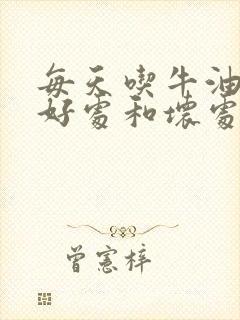 每天喫牛油
好處和壞處
曾憲梓